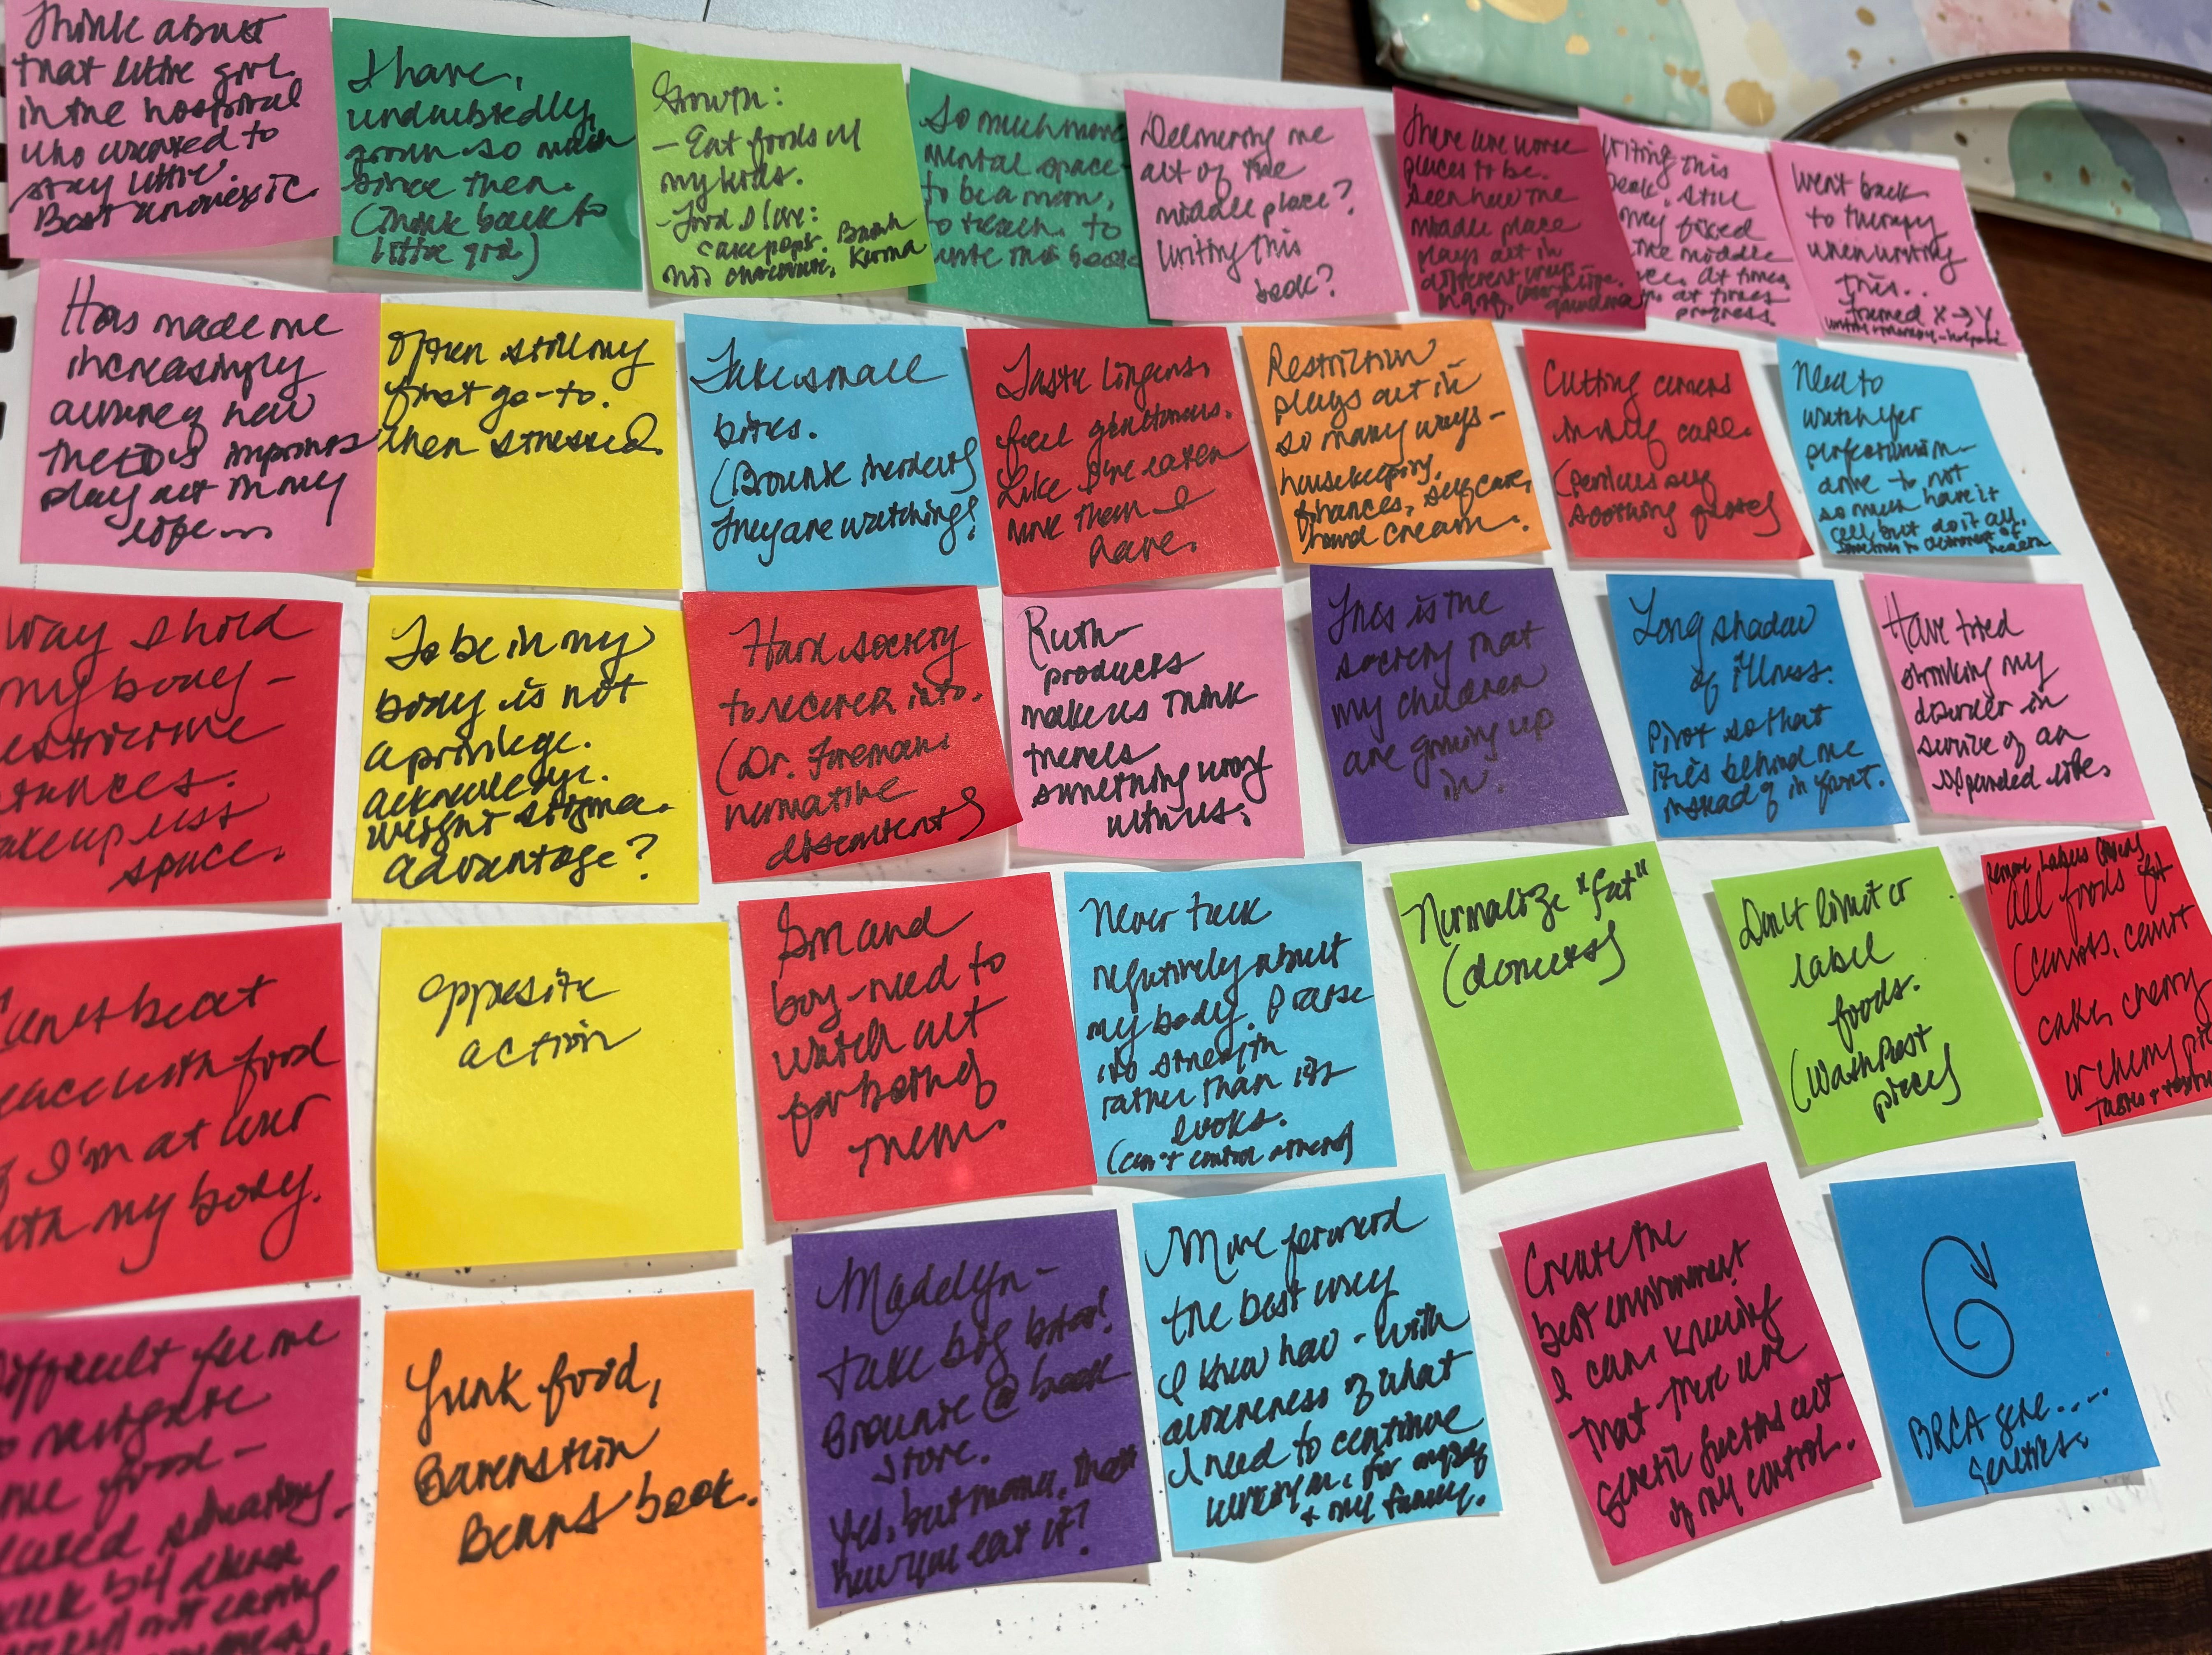 Think about
that little girl
in the hospital
who wanted to
stay little.
Best anorexic.
I have,
undoubtedly,
grown so much
since then.
(Think back to
little girl)
Growth:
- Eat foods w/
my kids.
- Food I love:
cake pops.
chocolate,
So much more
mental space -
to be a mom,
to teach. to
write this book
Delivering me
out of the
middle place?
Writing this
book?
There are worse
places to be.
Seen how the
middle place
plays out in
different ways -
grandma
writing this
book, still
fixed
the middle
at times,
at times
progress.
Went back
to therapy
when writing
this..
framed X → Y
Has made me
increasingly
aware of how
the ED's imprints
play out in my
life -
Often still my
first go-to.
when stressed.
Take small
bites.
(Brownie incident)
They are watching!
Taste lingers.
feel gluttonous.
Like I've eaten
more than I
have.
Restriction
plays out in
so many ways -
housekeeping,
finances, self care,
hand cream.
Cutting corners
in self care.
soothing
Need to
watch for
perfectionism -
drive - to not
so much have it
all, but do it all.
sometimes to detriment of
health
Way I hold
my body -
restrictive
stances.
Take up less
space.
To be in my
body is not
a privilege.
acknowledge.
weight stigma.
advantage?
Hard society
to recover into.
(Dr. Freeman:
normative
discontent)
Ruth -
products
make us think
there's
something wrong
with us.
This is the
society that
my children
are growing up
in.
Long shadow
of illness.
Pivot so that
it's behind me
instead of in front.
Have tried
shrinking my
disorder in
service of an
expanded life.
Can't be at
peace with food
if I'm at war
with my body.
Opposite
action
Girl and
boy - need to
watch out
for both of
them.
Never talk
negatively about
my body. Praise
its strength
rather than its
looks.
(can't control others)
Normalize "fat"
(donuts)
Don't limit or
label
foods.
(WashPost
piece)
Remove labels
All foods fit
(carrots, carrot
cake, cherry
or cherry pie
Difficult for me
to navigate
food -
situations -
not eating
Junk food,
Barenstein
Bears book.
Madelyn -
take big bites!
Brownie @ book
store.
Yes, but mama, that
how you eat it?
Move forward
the best way
I know how - with
awareness of what
I need to continue
working on, for myself
+ my family.
Create the
best environment
I can, knowing
that there are
genetic factors out
of my control.
BRCA gene....
genetics.